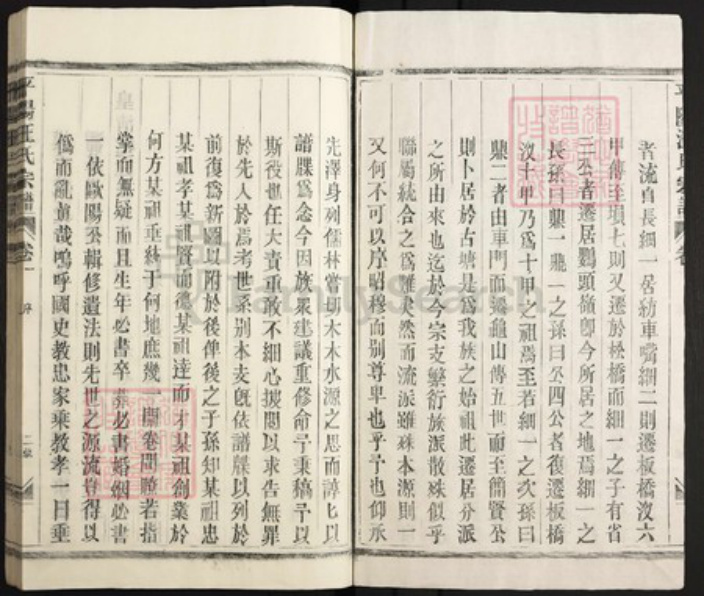 者流自長細一居紡車嘴細二則遷板橋汊六
甲傳至塤七則又遷於松橋而細一之子有省
三公者遷居鸚頭嶺卽今所居之地焉細一之
長孫曰鼎一鼎一之孫曰公四公者復遷板橋
汊十甲乃爲十甲之祖焉至若細一之次孫曰
鼎二者由車門而遷龜山傳五世而至簡賢公
則卜居於古塘是爲我族之始祖此遷居分派
之所由來也迄於今宗支繁衍族派散殊似乎
聯屬統合之爲難矣然而流派雖殊本源則一
又何不可以序昭穆而別尊卑也乎予也仰承
先澤身列儒林嘗切木本水源之思而諄匕以
譜牒爲念今因族衆建議重修命予秉稿予以
斯役也任大責重敢不細心披閱以求告無罪
於先人於焉考世系別本支旣依譜牒以列於
前復爲新圖以附於後俾後之子孫知某祖忠
某祖孝某祖賢而德某祖達而才某祖創業於
何方某祖垂終于何地庶幾一開卷間瞭若指
掌而無疑而且生年必書卒葬必書婚姻必書
一依歐陽公輯修遺法則先世之源流豈得以
僞而亂眞哉嗚呼國史教忠家乘教孝一日垂
平陽汪氏宗譜
卷一
序
FamilySearch